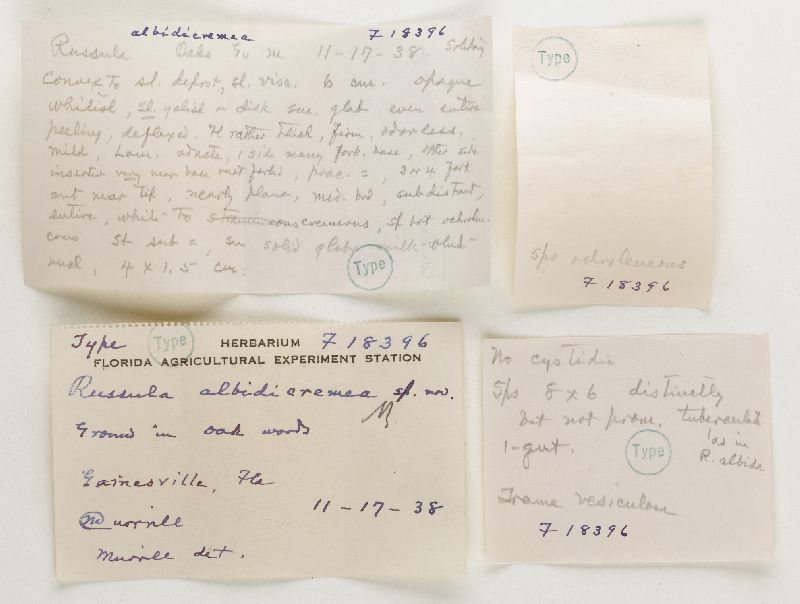 albidicremea F 18396
Russula Oaks Gv M 11-17-38 Solitary
Convex to sl. depres., sl. visc. 6 cm. opaque
whitish, sl. yelish on disk sur. glab even entire
peeling, deflexed. Fl rather thick, firm, odorless,
mild, Lam. adnate, 1 side many fork. base, other side
inserted very near base most forked, prac. =, 3 or 4 fork
out near tip, nearly plane, med. brd, subdistant,
entire, white to stramineous cremeous, sp prt ochroleu-
cous St sub =, sur solid glab milk-white
4 x 1.5 cm.
Type
Type
Sps ochroleucous
F 18396
Type Type HERBARIUM F 18396
FLORIDA AGRICULTURAL EXPERIMENT STATION
Russula albidicremea sp. nov.
M
Ground in oak woods
Gainesville, Fla
11-17-38
Murrill
Murrill det.
No cystidia
Sps 8 x 6 distinctly
but not prom. tuberculate
as in
R. albida
1-gut.
Type
Trama vesiculose
F 18396